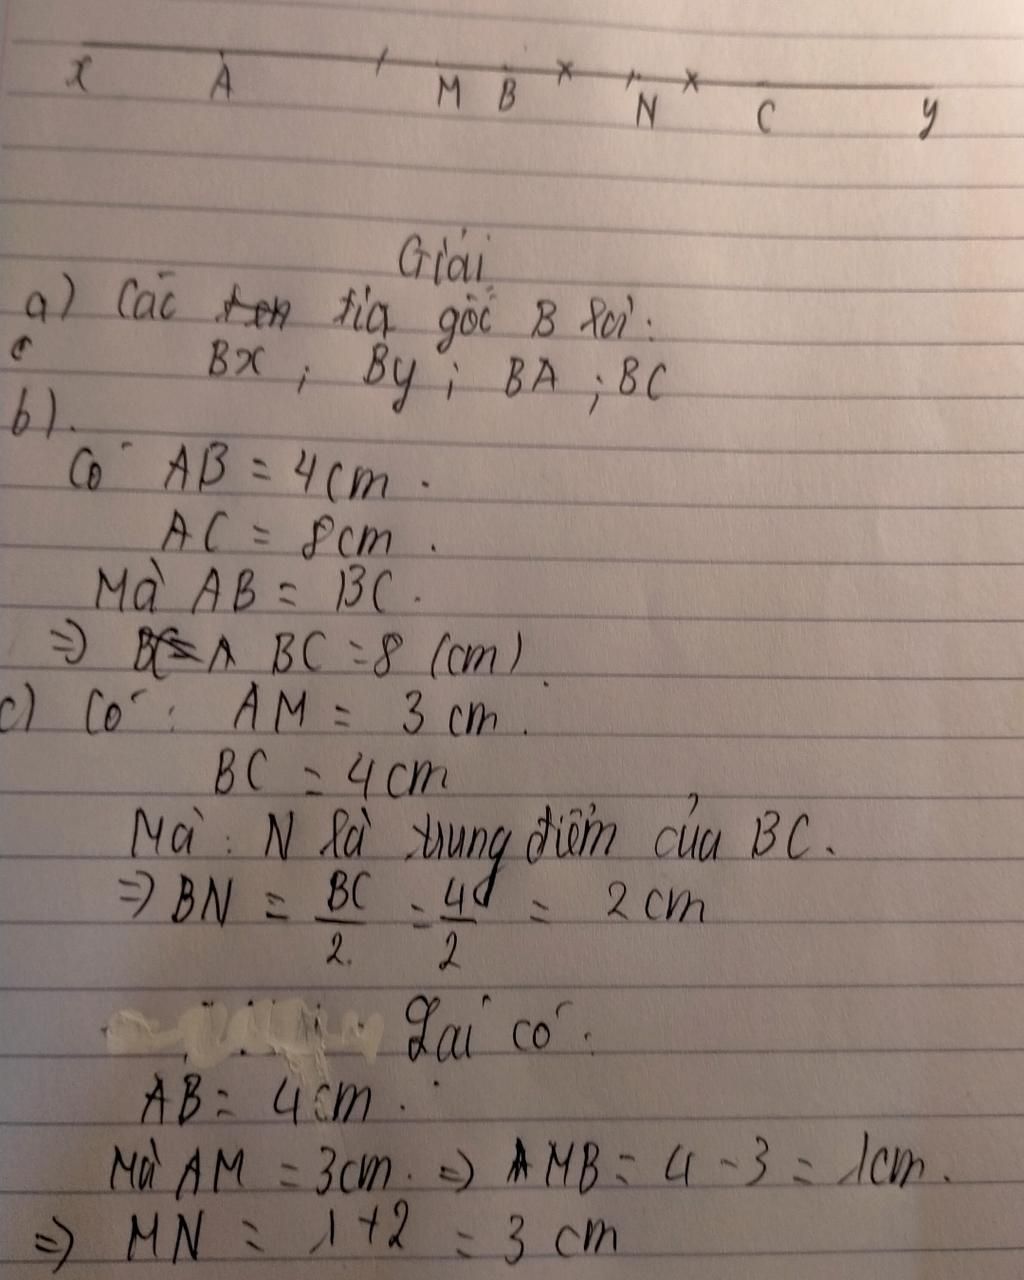 x A M B N C y
Giải
a) Các tia gốc B là:
Bx ; By ; BA ; BC
b).
Có AB = 4cm.
AC = 8cm.
Mà AB = BC.
=> BC = 8 (cm).
c) Có: AM = 3 cm.
BC = 4cm
Mà: N là trung điểm của BC.
=> BN = BC/2 = 4/2 = 2 cm
Lại có:
AB = 4cm.
Mà AM = 3cm. => MB = 4 - 3 = 1cm.
=> MN = 1+2 = 3 cm